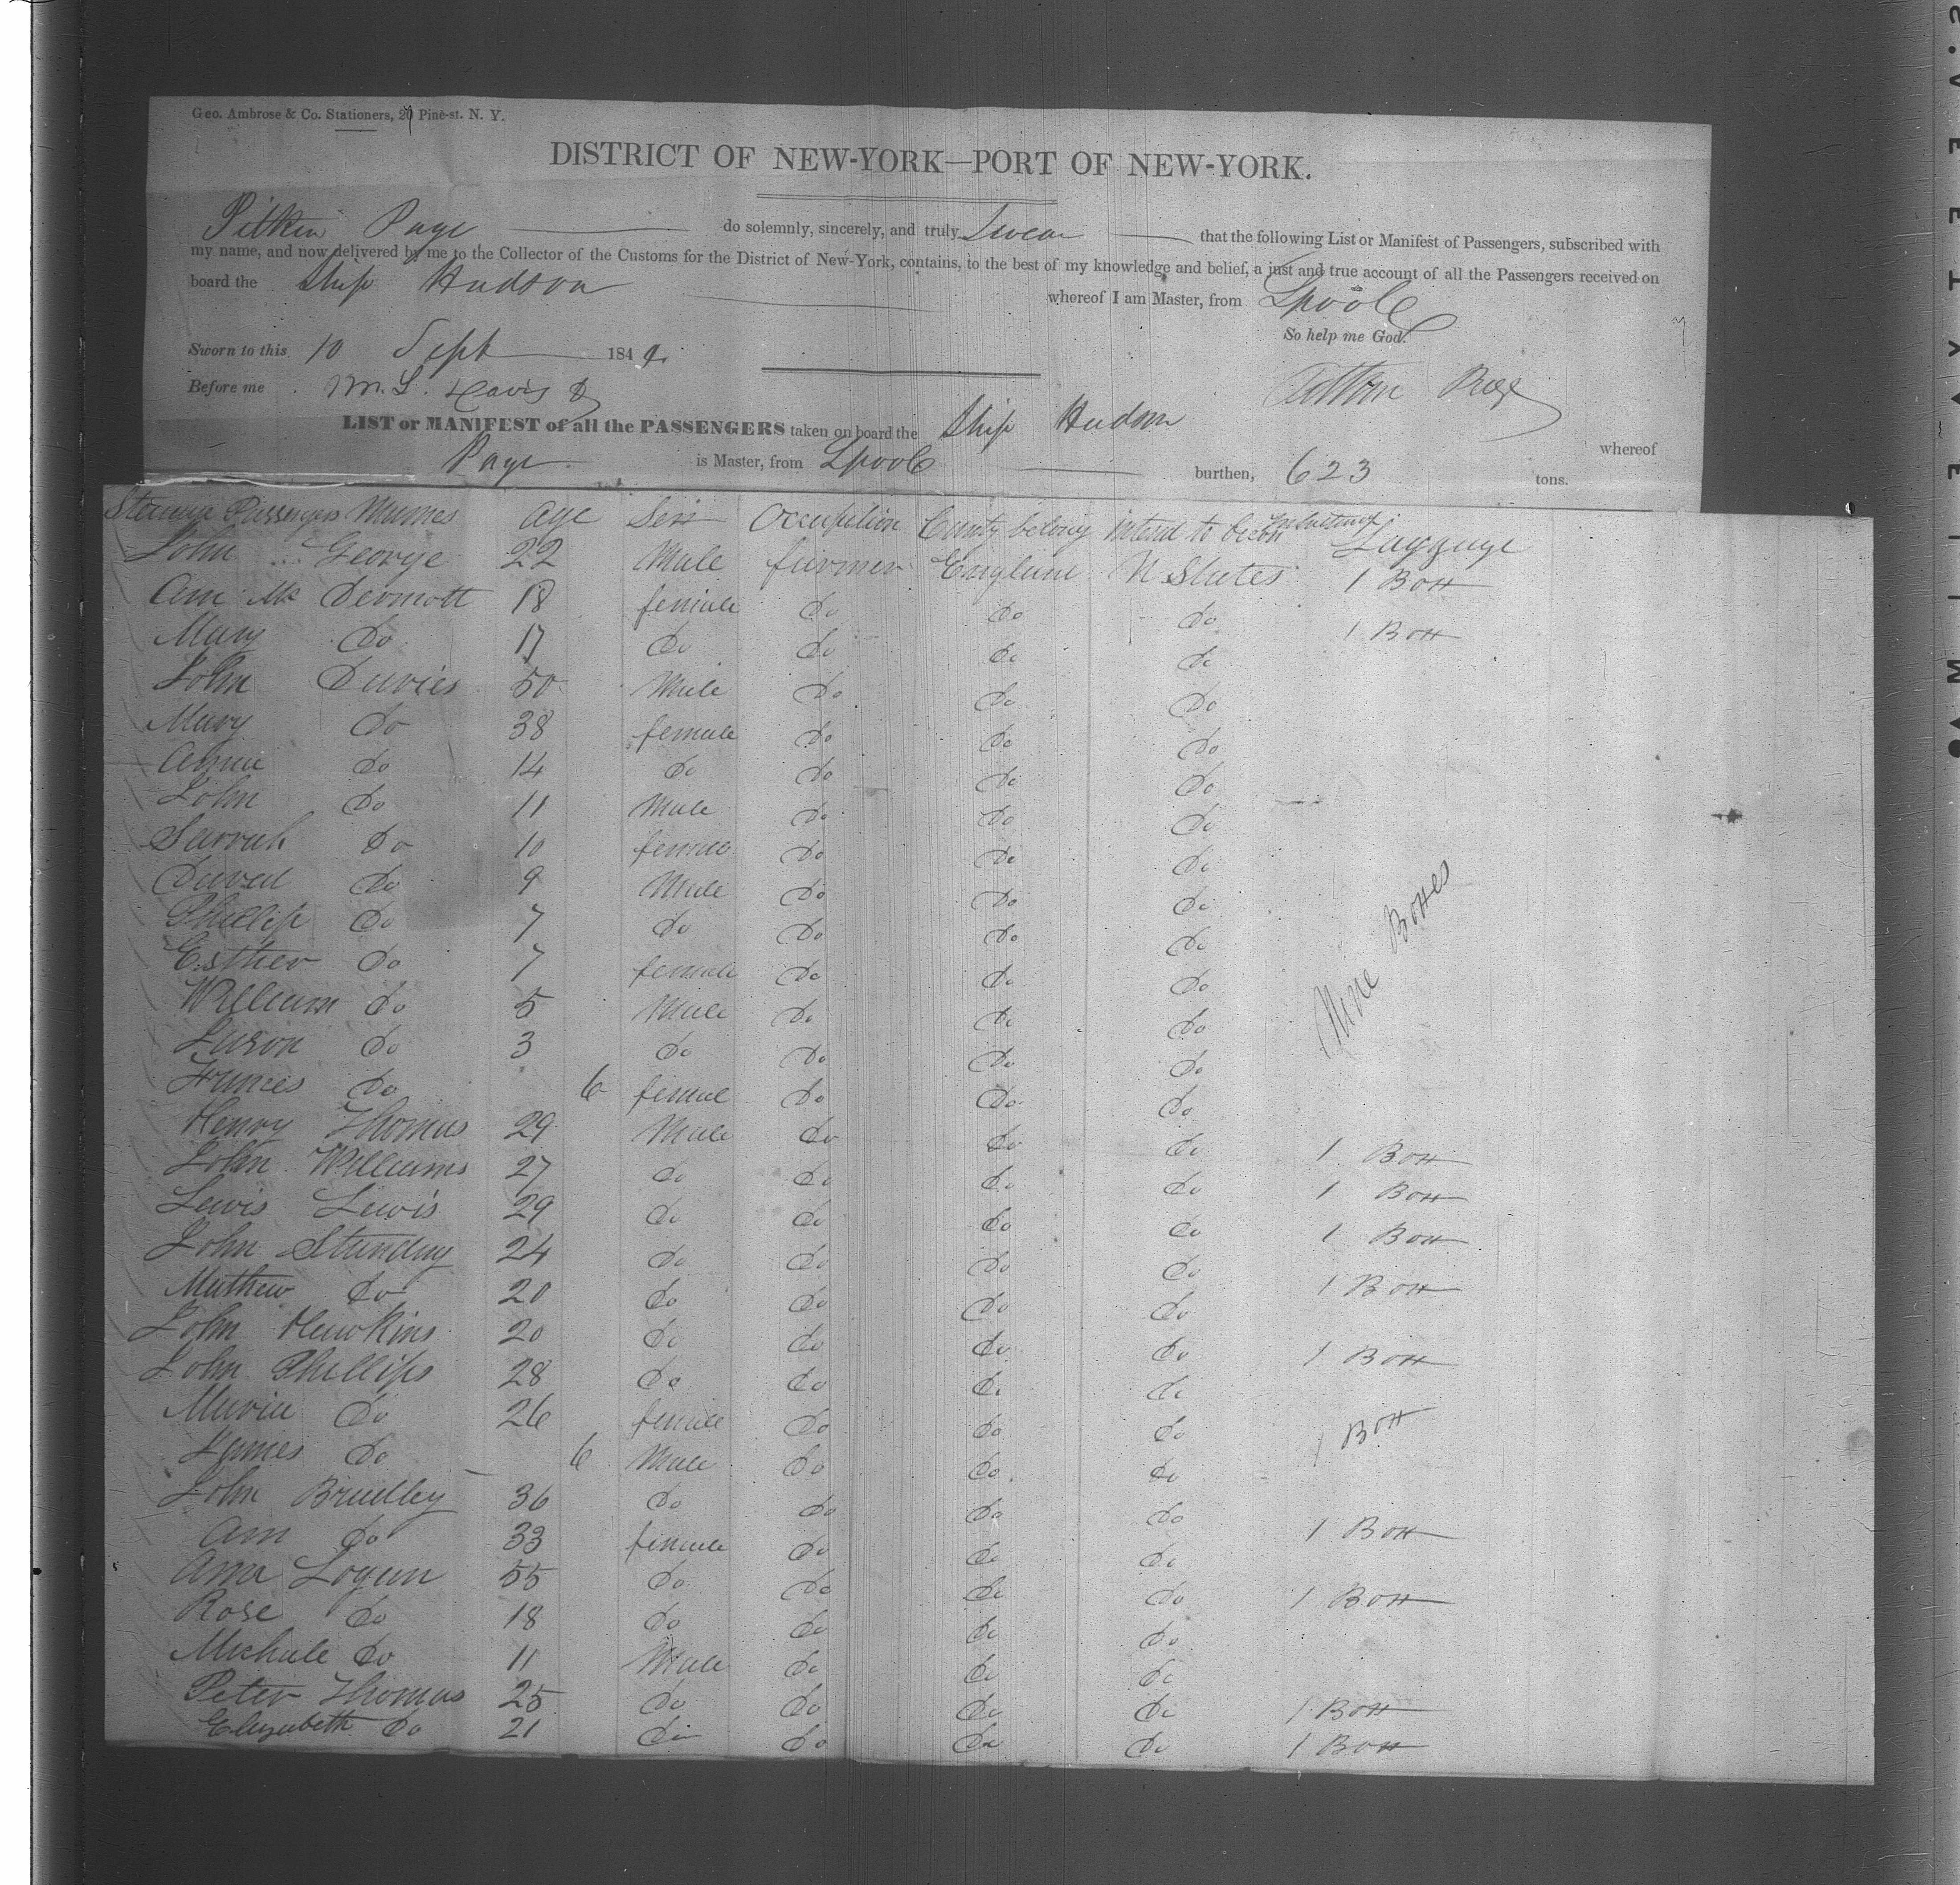 Geo. Ambrose & Co. Stationers, 20 Pine-st. N. Y.
DISTRICT OF NEW-YORK—PORT OF NEW-YORK.
Pitkin Page do solemnly, sincerely, and truly Swear that the following List or Manifest of Passengers, subscribed with
my name, and now delivered by me to the Collector of the Customs for the District of New-York, contains, to the best of my knowledge and belief, a just and true account of all the Passengers received on
board the Ship Hudson whereof I am Master, from Lpool
So help me God.
Sworn to this 10 Sept 184
Before me M. L. Davis Pitkin Page
LIST or MANIFEST of all the PASSENGERS taken on board the Ship Hudson whereof
Page is Master, from Lpool burthen, 623 tons.
Steerage Passengers Names Age Sex Occupation belong intend to Luggage
John George 22 Male farmer England U States 1 Box
Ann Mc Dermott 18 female do do do 1 Box
Mary do 17 do do do do
John Davies 50 Male do do do
Mary do 38 female do do do
do 14 do do do do
John do 11 Male do do do
Sarrah do 10 female do do do
Daved do 9 Male do do do
Phillip do 7 do do do do
Esther do 7 female do do do
William do 5 Male do do do Nine Boxes
do 3 do do do do
do 6 female do do do
Henry Thomas 29 Male do do do 1 Box
John Williams 27 do do do do 1 Box
Lewis Lewis 29 do do do do 1 Box
John 24 do do do do 1 Box
Mathew do 20 do do do do
John Hawkins 20 do do do do 1 Box
John Phillips 28 do do do do
Maria do 26 female do do do 1 Box
James do 6 Male do do do
John Bradley 36 do do do do 1 Box
Ann do 33 female do do do
Ann Logan 55 do do do do 1 Box
Rose do 18 do do do do
Michale do 11 Male do do do
Peter Thomas 25 do do do do 1 Box
Elizabeth do 21 do do do do 1 Box